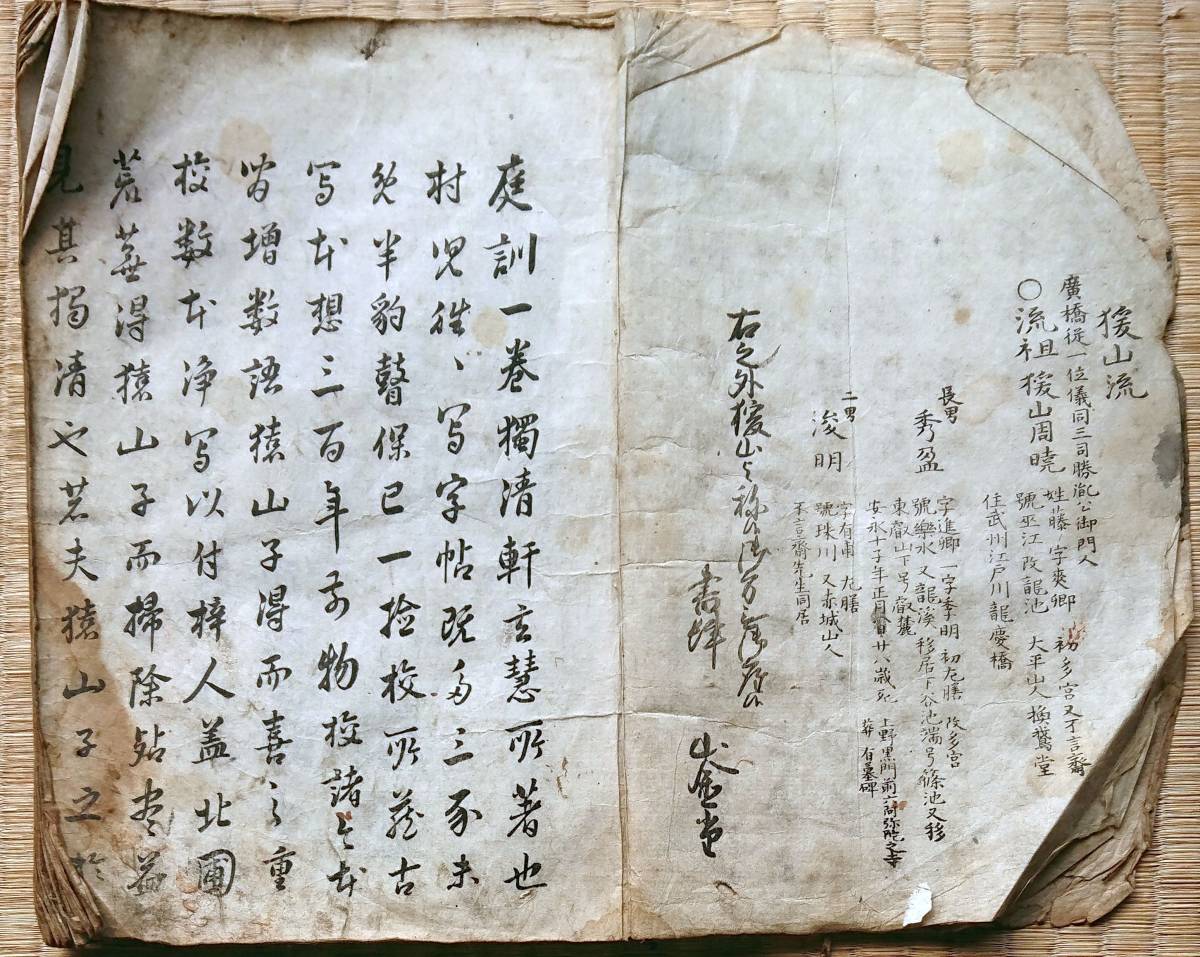 猨山流
廣橋従一位儀同三司勝胤公御門人
〇流祖猨山周曉
姓藤 字爽卿 初多宮又不言齋
號巫江 改龍池 大平山人換鵞堂
住武州江戸川龍慶橋
長男
秀盈
字進卿 一字季明 初左膳 改多宮
號樂水 又龍溪 移居下谷池端号篠池又移
東叡山下号叡麓
安永十子年正月 廿八歳死
上野黒門前 阿弥陀之寺
葬 有墓碑
二男
浚明
字有甫 左膳
號珠川 又赤城山人
不言齋先生同居
右之外猨山と称
庭訓一巻獨清軒玄慧所著也
村児徃〻写字帖既多三豕未
免半豹瞽保已一撿校所蔵古
写本想三百年前物校諸今本
當增數語猿山子得而喜之重
校数本浄写以付梓人盖北圃
荒蕪得猿山子而掃除
見其獨清也若夫猿山子之於